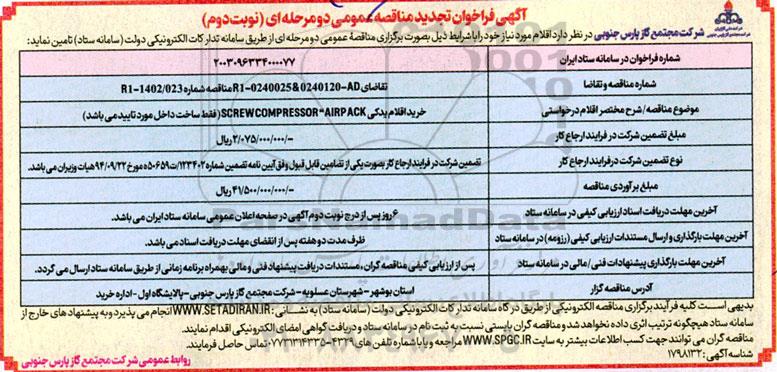 آگهی فراخوان تجدید مناقصه عمومی دو مرحله ای (نوبت دوم)
شرکت مجتمع گاز پارس جنوبی در نظر دارد اقلام مورد نیاز خود را با شرایط ذیل بصورت برگزاری مناقصه عمومی دو مرحله ای از طریق سامانه تدارکات الکترونیکی دولت (سامانه ستاد) تامین نماید:
شماره فراخوان در سامانه ستاد ایران ۲۰۰۳۰۹۶۳۳۴۰۰۰۰۷۷
شماره مناقصه و تقاضا تقاضای R1-0240025&0240120-AD مناقصه شماره R1-1402/023
موضوع مناقصه/ شرح مختصر اقلام درخواستی خرید اقلام یدکی SCREW COMPRESSOR "AIRPACK (فقط ساخت داخل مورد تایید می باشد)
مبلغ تضمین شرکت در فرایند ارجاع کار ۲/۰۷۵/۰۰۰/۰۰۰/- ریال
نوع تضمین شرکت در فرایند ارجاع کار تضمین شرکت در فرایند ارجاع کار بصورت یکی از تضامین قابل قبول وفق آیین نامه تضمین شماره ۱۲۳۴۰۲/ت۵۰۶۵۹ه مورخ ۹۴/۰۹/۲۲ هیات وزیران می باشد.
مبلغ برآوردی مناقصه ۴۱/۵۰۰/۰۰۰/۰۰۰/- ریال
آخرین مهلت دریافت اسناد ارزیابی کیفی در سامانه ستاد ۶ روز پس از درج نوبت دوم آگهی در صفحه اعلان عمومی سامانه ستاد ایران می باشد.
آخرین مهلت بارگذاری و ارسال مستندات ارزیابی کیفی (رزومه) در سامانه ستاد ظرف مدت دو هفته پس از انقضای مهلت دریافت اسناد می باشد.
آخرین مهلت بارگذاری پیشنهادات فنی/مالی در سامانه ستاد پس از ارزیابی کیفی مناقصه گران، مستندات دریافت پیشنهاد فنی و مالی بهمراه برنامه زمانی از طریق سامانه ستاد ارسال می گردد.
آدرس مناقصه گزار استان بوشهر - شهرستان عسلویه - شرکت مجتمع گاز پارس جنوبی - پالایشگاه اول - اداره خرید
بدیهی است کلیه فرآیند برگزاری مناقصه الکترونیکی از طریق درگاه سامانه تدارکات الکترونیکی دولت (سامانه ستاد) به نشانی: WWW.SETADIRAN.IR انجام می پذیرد و به پیشنهاد های خارج از
سامانه ستاد هیچگونه ترتیب اثری داده نخواهد شد و مناقصه گران بایستی نسبت به ثبت نام در سامانه ستاد و دریافت گواهی امضای الکترونیکی اقدام نمایند.
مناقصه گران می توانند جهت کسب اطلاعات بیشتر به سایت WWW.SPGC.IR مراجعه و یا با شماره تلفن های ۴۳۲۹-۰۷۷۳۱۳۱۴۳۳۵ تماس حاصل فرمایند.
شناسه آگهی: ۱۷۹۸۱۳۲
روابط عمومی شرکت مجتمع گاز پارس جنوبی